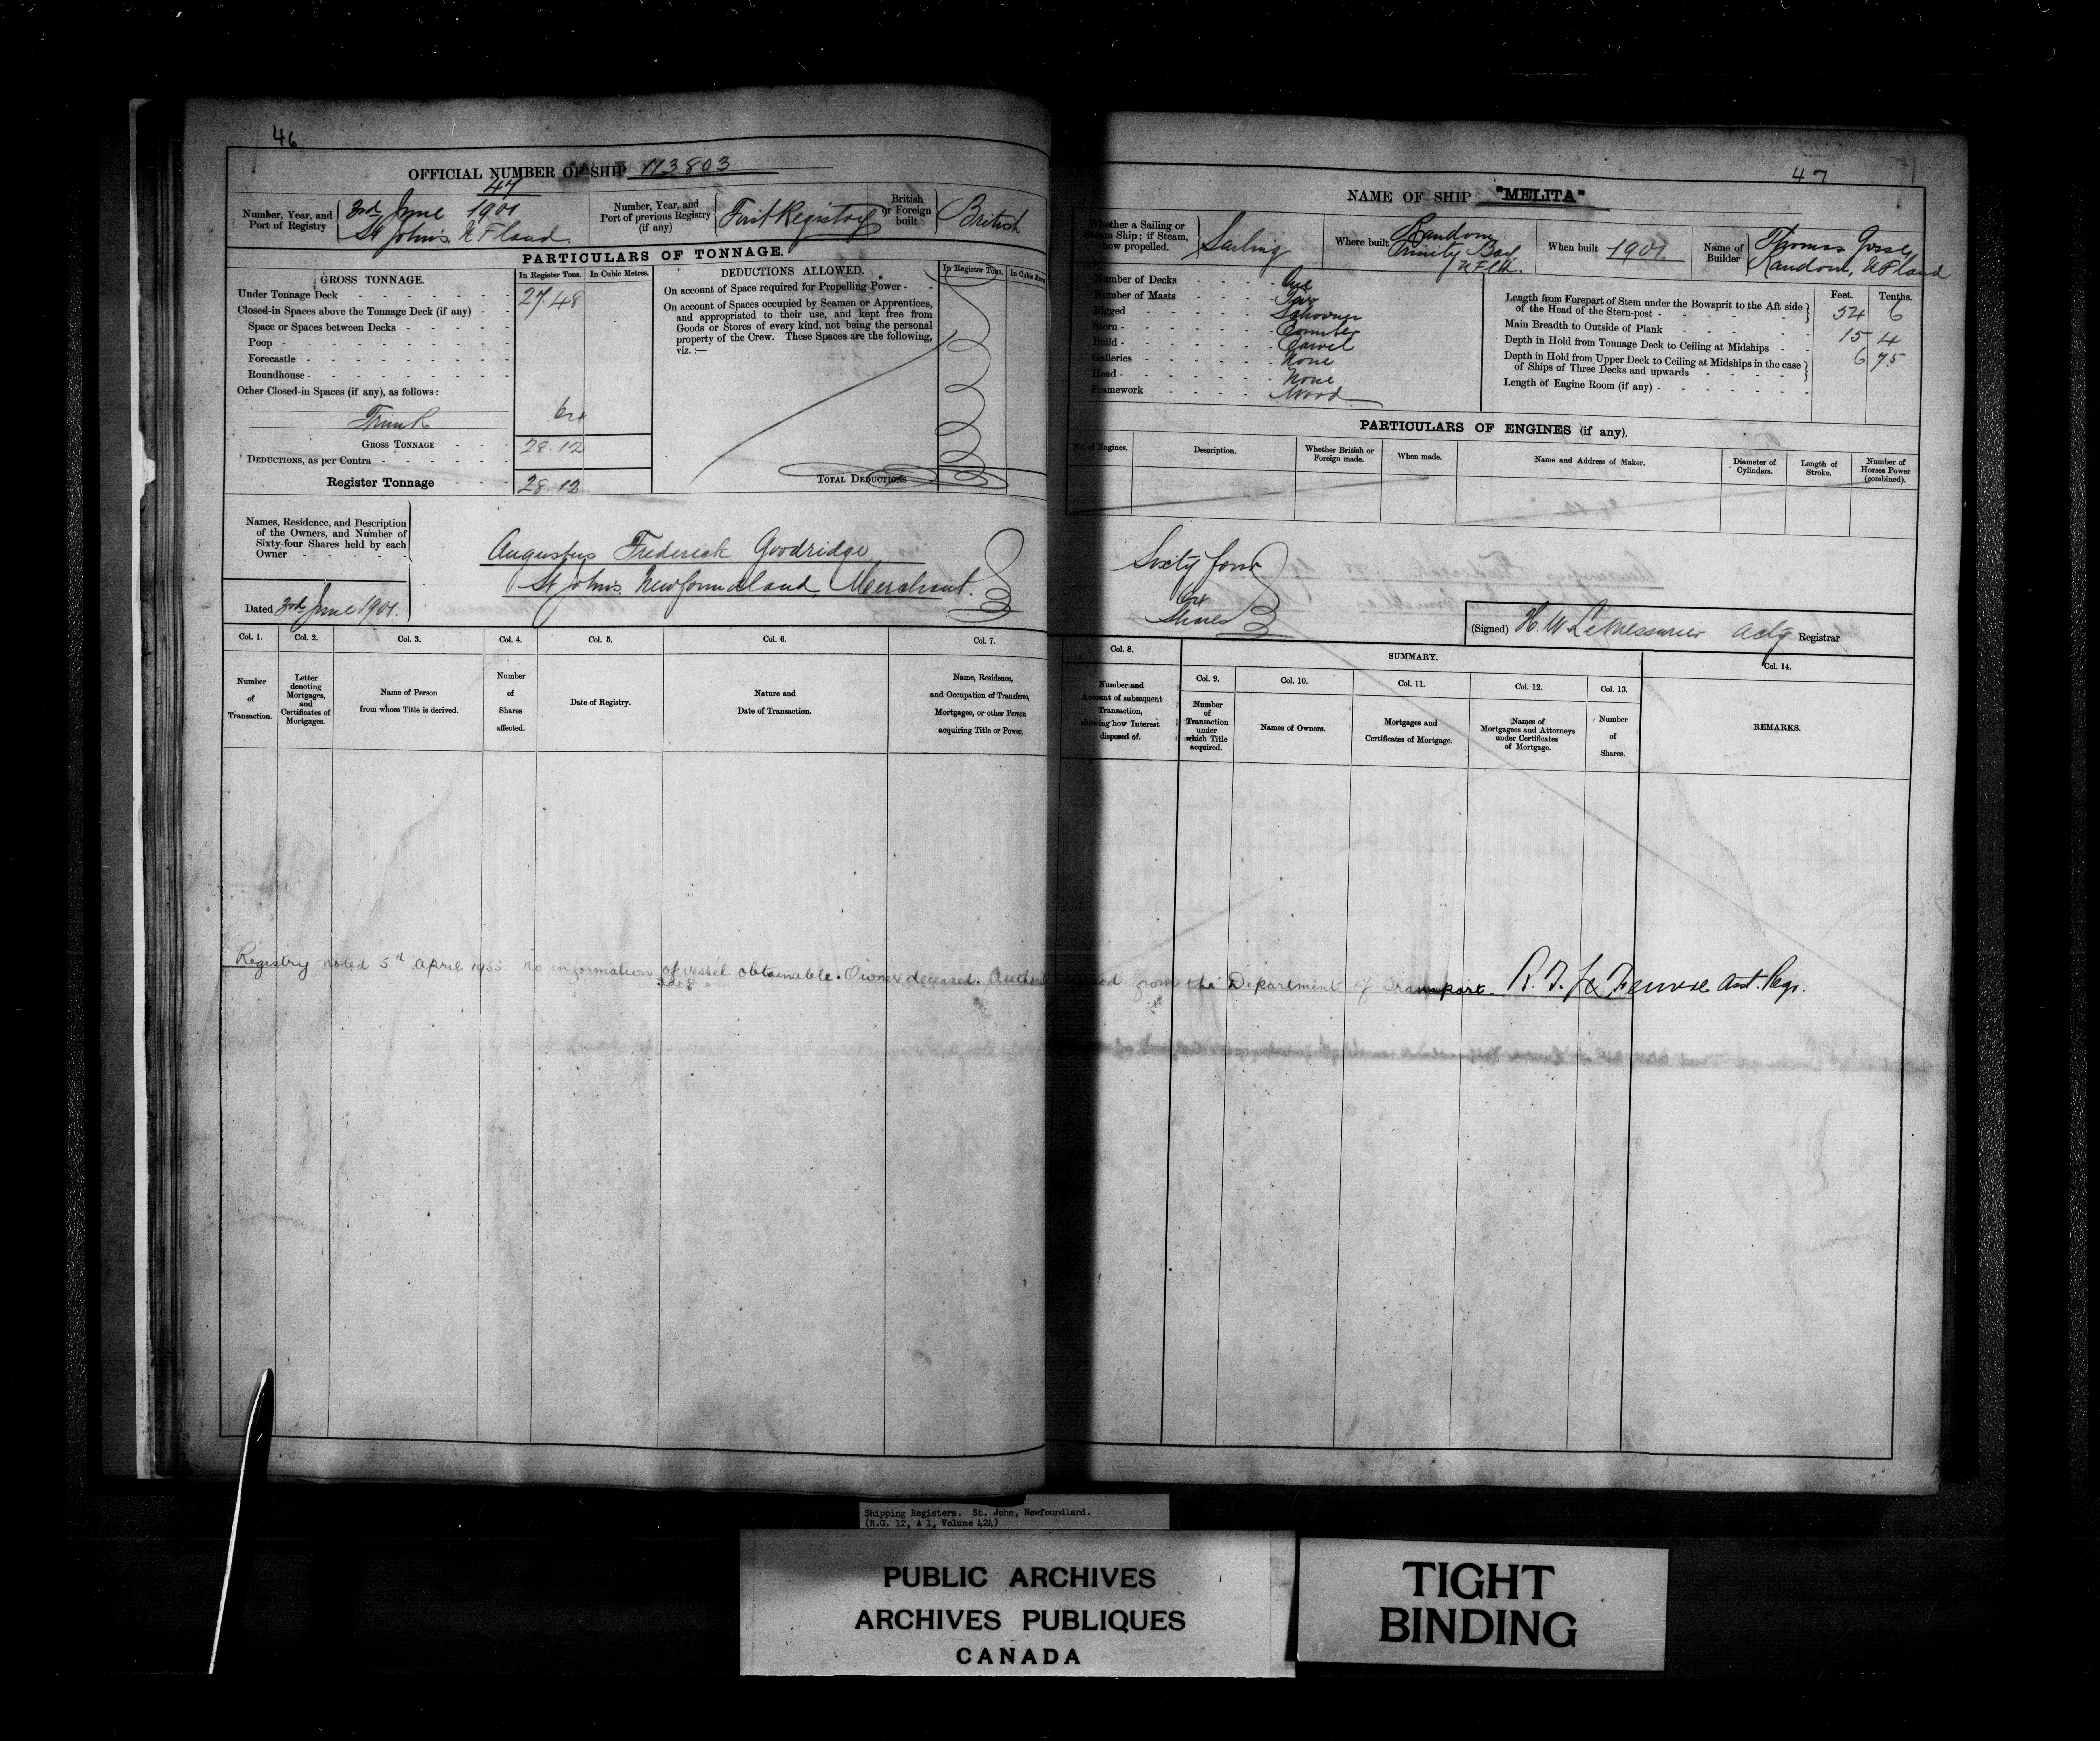 46
OFFICIAL NUMBER OF SHIP 113.803
Number, Year, and Port of Registry
47
3rd June 1901
St John's NFland.
Number, Year, and Port of previous Registry (if any)
First Registry
British or Foreign built
British
PARTICULARS OF TONNAGE.
GROSS TONNAGE.
In Register Tons.
In Cubic Metres.
Under Tonnage Deck 27.48
Closed-in Spaces above the Tonnage Deck (if any)
Space or Spaces between Decks
Poop
Forecastle
Roundhouse
Other Closed-in Spaces (if any), as follows:
Trunk 64
GROSS TONNAGE 28.12
DEDUCTIONS, as per Contra
Register Tonnage 28.12
DEDUCTIONS ALLOWED.
In Register Tons.
In Cubic
On account of Space required for Propelling Power
On account of Spaces occupied by Seamen or Apprentices,
and appropriated to their use, and kept free from
Goods or Stores of every kind, not being the personal
property of the Crew. These Spaces are the following,
viz.:—
TOTAL DEDUCTIONS
Names, Residence, and Description
of the Owners, and Number of
Sixty-four Shares held by each
Owner
Dated 3rd June 1901.
Augustus Frederick Goodridge
St John's Newfoundland Merchant.
Col. 1.
Number of Transaction.
Col. 2.
Letter denoting Mortgages, and Certificates of Mortgages.
Col. 3.
Name of Person from whom Title is derived.
Col. 4.
Number of Shares affected.
Col. 5.
Date of Registry.
Col. 6.
Nature and Date of Transaction.
Col. 7.
Name, Residence, and Occupation of Transferee, Mortgagee, or other Person acquiring Title or Power.
47
NAME OF SHIP "MELITA"
Whether a Sailing or Steam Ship; if Steam, how propelled.
Sailing
Where built
Random
Trinity Bay
NFld.
When built 1901
Name of Builder
Thomas Gosse,
Random, NFland
Number of Decks One
Number of Masts Two
Rigged Schooner
Stern Counter
Build Carvel
Galleries None
Head None
Framework Wood
Feet. Tenths.
Length from Forepart of Stem under the Bowsprit to the Aft side of the Head of the Stern-post 54 6
Main Breadth to Outside of Plank 15 4
Depth in Hold from Tonnage Deck to Ceiling at Midships 6 75
Depth in Hold from Upper Deck to Ceiling at Midships in the case of Ships of Three Decks and upwards
Length of Engine Room (if any)
PARTICULARS OF ENGINES (if any).
No. of Engines.
Description.
Whether British or Foreign made.
When made.
Name and Address of Maker.
Diameter of Cylinders.
Length of Stroke.
Number of Horses Power (combined).
Sixty four
64
Shares
(Signed) H. W. LeMessurier Actg Registrar
Col. 8.
Number and Account of subsequent Transaction, showing how Interest disposed of.
SUMMARY.
Col. 9.
Number of Transaction under which Title acquired.
Col. 10.
Names of Owners.
Col. 11.
Mortgages and Certificates of Mortgage.
Col. 12.
Names of Mortgagees and Attorneys under Certificates of Mortgage.
Col. 13.
Number of Shares.
Col. 14.
REMARKS.
Registry noted 5th April 1955 no information of vessel obtainable. Owner deceased. from the Department of Transport. Asst. Regr.
Shipping Registers. St. John, Newfoundland.
(R.G. 12, A 1, Volume 424)
PUBLIC ARCHIVES
ARCHIVES PUBLIQUES
CANADA
TIGHT
BINDING